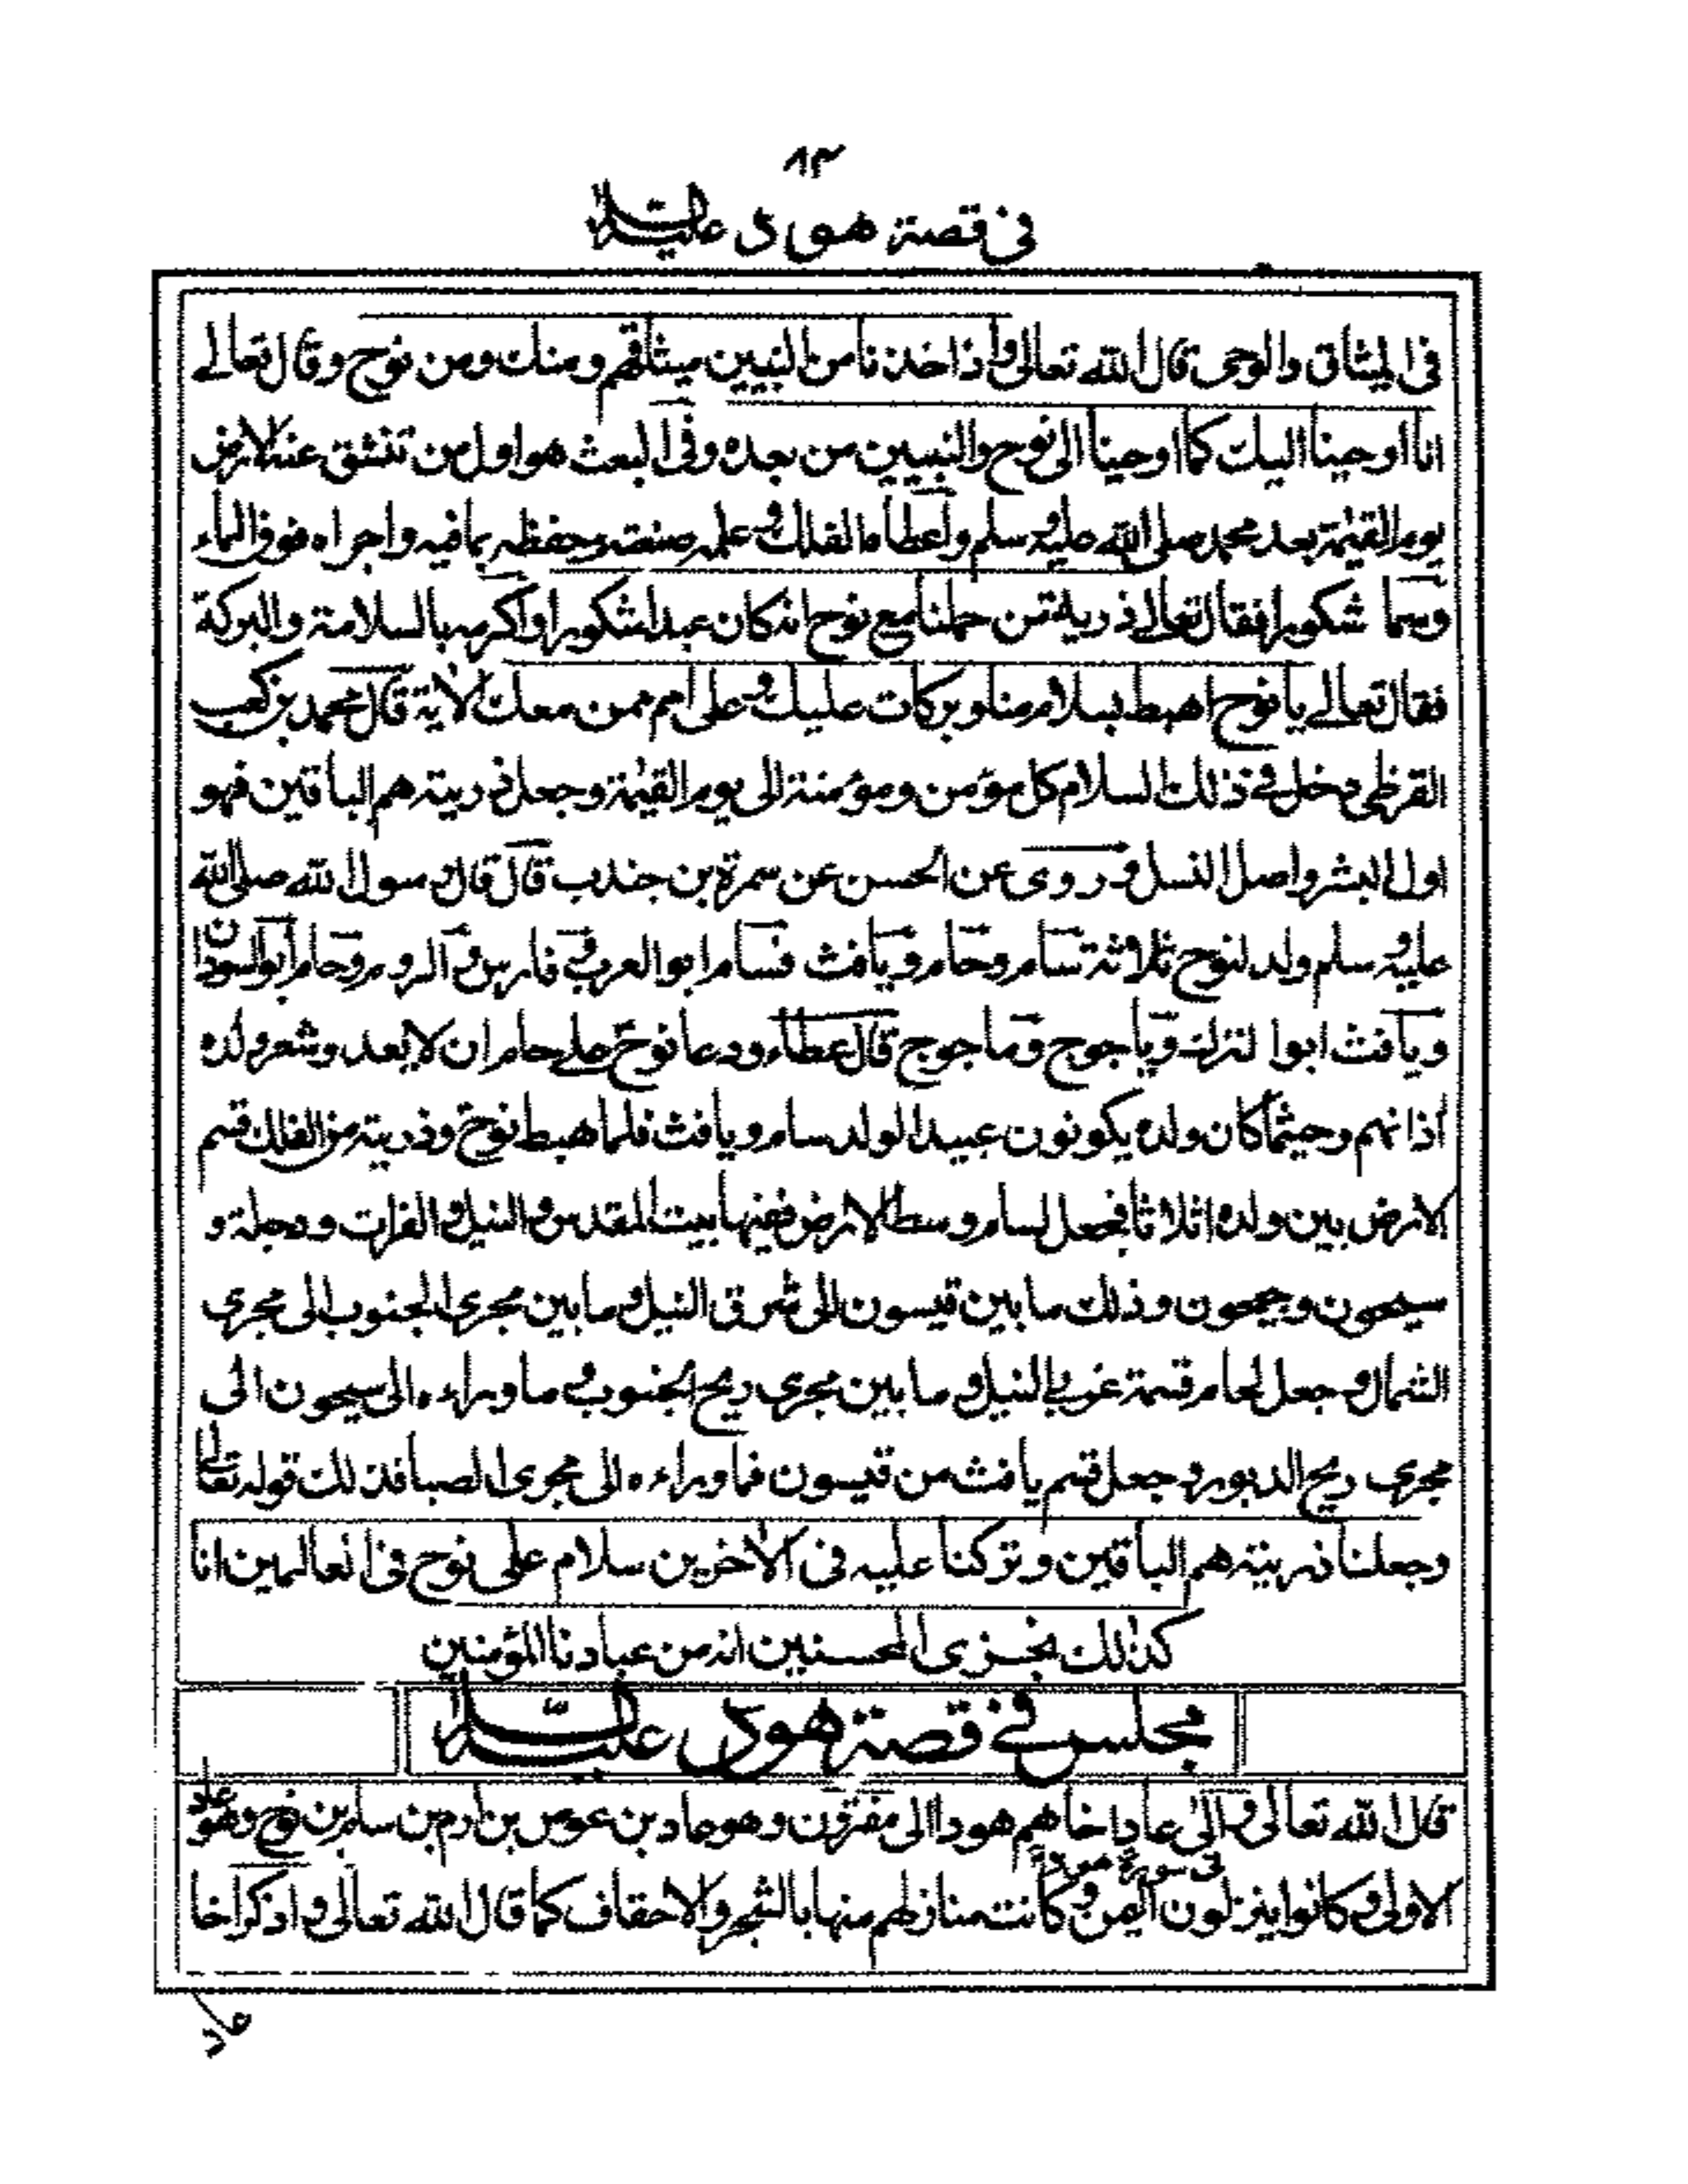 ٨٣
فى قصة هود عليه السلام
فى الميثاق والوحى قال الله تعالى واذ اخذنا من النبيين ميثاقهم ومنك ومن نوح وقال تعالے
انا اوحينا اليك كما اوحينا الى نوح والنبيين من بعده وفى البعث هو اول من تنشق عنه الارض
يوم القيٰمة بعد محمد صلى الله عليه وسلم واعطاه الفلك وعلمه صنعته وحفظه بما فيه واجراه فوق الماء
وسما شكورا فقال تعالے ذرية من حملنا مع نوح انه كان عبدا شكورا واكرمه بالسلامة والبركة
فقال تعالے يا نوح اهبط بسلام منا وبركات عليك وعلى امم ممن معك الاية قال محمد بن كعب
القرظى دخل فے ذلك السلام كل مؤمن ومؤمنة الى يوم القيٰمة وجعل ذريته هم الباقين فهو
اول البشر واصل النسل وروى عن الحسن عن سمرة بن جندب قال قال رسول الله صلى الله
عليه وسلم ولد لنوح ثلاثة سام وحام ويافث فسام ابو العرب وفارس والروم وحام ابو السودان
ويافث ابوا لترك وياجوج وماجوج قال عطاء ودعا نوح على حام ان لا يعد وشعر ولده
اذانهم وحيثما كان ولده يكونون عبيدا لولد سام ويافث فلما هبط نوح وذريته من الفلك قسم
الارض بين ولده اثلاثا فجعل لسام وسط الارض ففيها بيت المقدس والنيل والفرات ودجلة و
سيحون وجيحون وذلك ما بين قيسون الى شرق النيل وما بين مجرى الجنوب الى مجرى
الشمال وجعل لحام قسمة غربے النيل وما بين مجرى ريح الجنوب وما وراءه الى سيحون الى
مجرى ريح الدبور وجعل قسم يافث من قيسون فما وراءه الى مجرى الصبا فذلك قوله تعالى
وجعلنا ذريته هم الباقين وتركنا عليه فى الاٰخرين سلام على نوح فى العالمين انا
كذلك نجزى المحسنين انه من عبادنا المؤمنين
مجلس فے قصة هود عليه السلام
قال الله تعالى والى عاد اخاهم هودا الى مفترون وهو عاد بن عوص بن ارم بن سام بن نوح وهو عاد
فى سورة هود
الاولى وكانوا ينزلون اليمن وكانت منازلهم منها بالشجر والاحقاف كما قال الله تعالى واذكر اخا
عاد